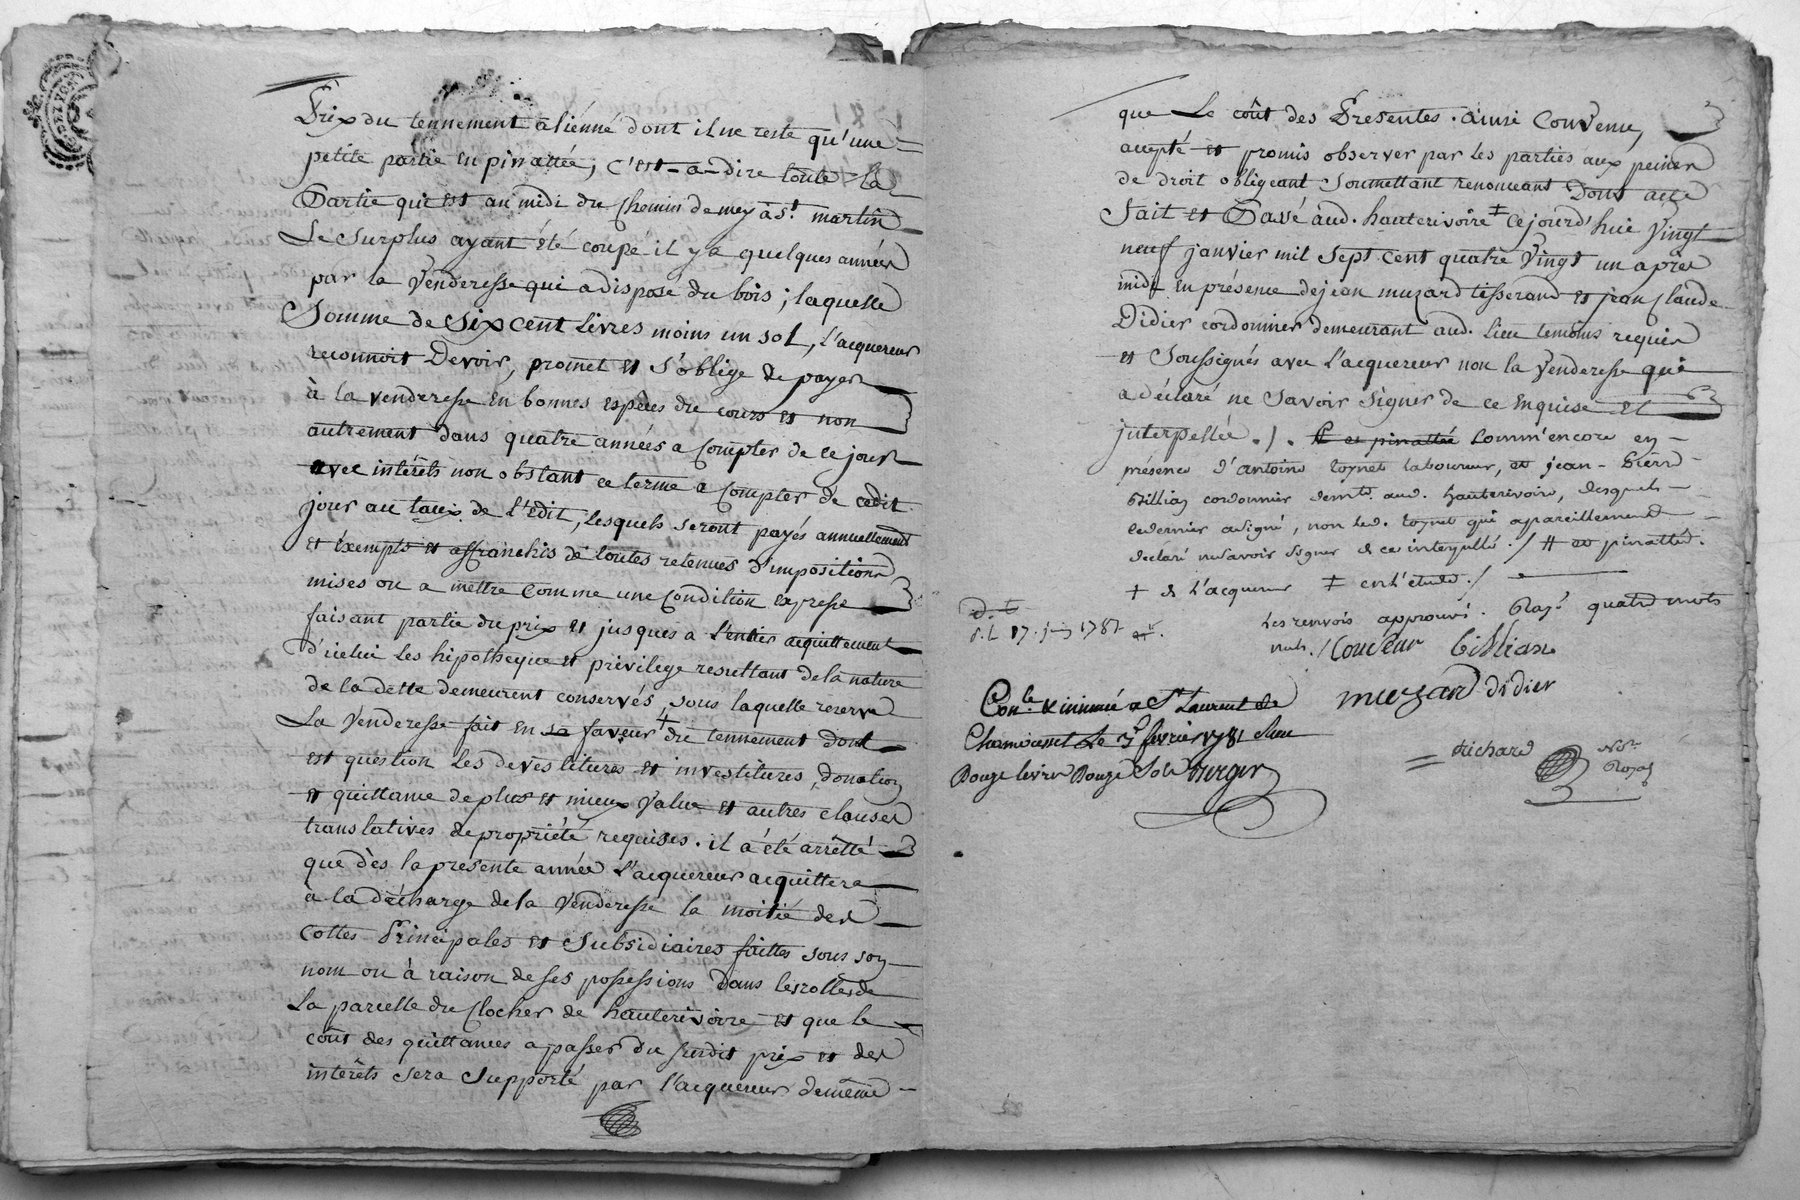 Prix du tennement aliénné dont il ne reste qu'une
petite partie en pinattée; c'est-a-dire toute la
Partie qui est au midi du Chemin de mey a St. martin
Le Surplus ayant été coupé il y a quelques années
par la Venderesse qui a disposé du bois; laquelle
Somme de Six cent Livres moins un sol, L'acquereur
reconnoit Devoir, promet et s'oblige de payer
à la venderesse en bonnes espèces du cours et non
autrement dans quatre années a Compter de ce jour
avec intérêts non obstant ce terme a Compter de cedit
jour au taux de L'Edit, lesquels seront payés annuellement
et exempts et affranchis de toutes retenues d'impositions
mises ou a mettre Comme une Condition expresse
faisant partie du prix et jusques a L'entier acquittement
d'icelui Les hipotheque et privilege resultant de la nature
de la dette demeurent conservés, sous laquelle reserve
La Venderesse fait en sa faveur + du tennement dont
est question Les devestitures et investitures, donation
et quittance de plus et mieux Value et autres clauses
translatives de propriété requises. il a été arrêtté
que dès la presente année L'acquereur acquittera
à la décharge de la Venderesse la moitié des
Cottes Principales et Subsidiaires faittes sous son
nom ou à raison de ses possessions Dans les rolles de
La parcelle du Clocher de hauterivoire et que le
coût des quittances a passer du surdit prix et des
intérêts sera Supporté par l'acquereur de même
que Le coût des Presentes. ainsi Convenu,
accepté et promis observer par les parties aux peines
de droit obligeant Soumettant renonceant Dont acte
Fait et Passé aud. hauterivoire ‡ Cejourd'hui Vingt
neuf janvier mil Sept cent quatre Vingt un après
midi En présence de jean muzard tisserand et jean Claude
Didier cordonnier demeurant aud. Lieu temoins requis
et Soussignés avec L'acquereur non la Venderesse qui
a déclaré ne Savoir Signer de ce Enquise et
jnterpellée ./. et pinattée Comm'encore en
présence d'antoine toynet laboureur, et jean-Pierre
Billian cordonnier demts. aud. hauterivoire, desquels
le dernier a signé, non led. toynet qui a pareillement
declaré ne savoir signer de ce interpellé ./ # et pinattée.
+ de L'acquereur ‡ en L'étude ./
Les renvois approuvé. Rayé quatre mots
nuls. / Coudeur Billian
muzard didier
Richard Nore. Royal
d. t.
s. L 17. jn 1781
Conlé. & insinué a St. Laurent de
Chamousset Le 3 fevrier 1781 Reçu
Douze livres Douze Sols